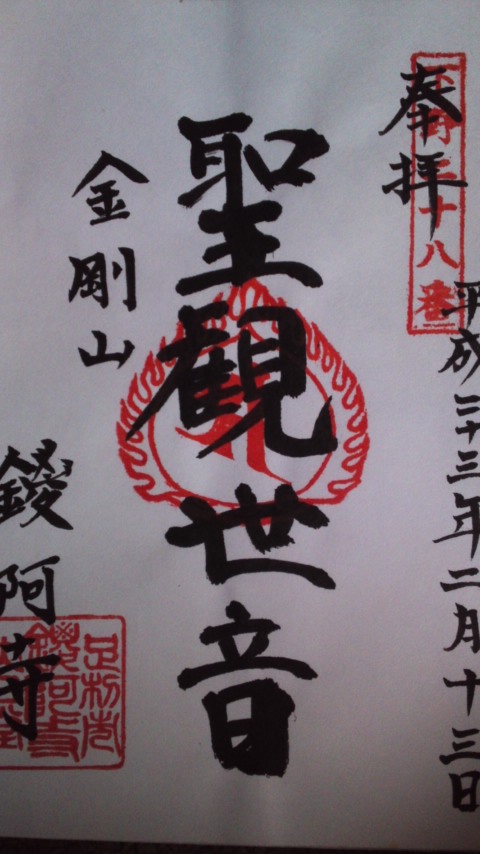 奉拝
下野二十八番
平成二十三年二月十三日
聖観世音
金剛山
鑁阿寺
足利市
鑁阿寺